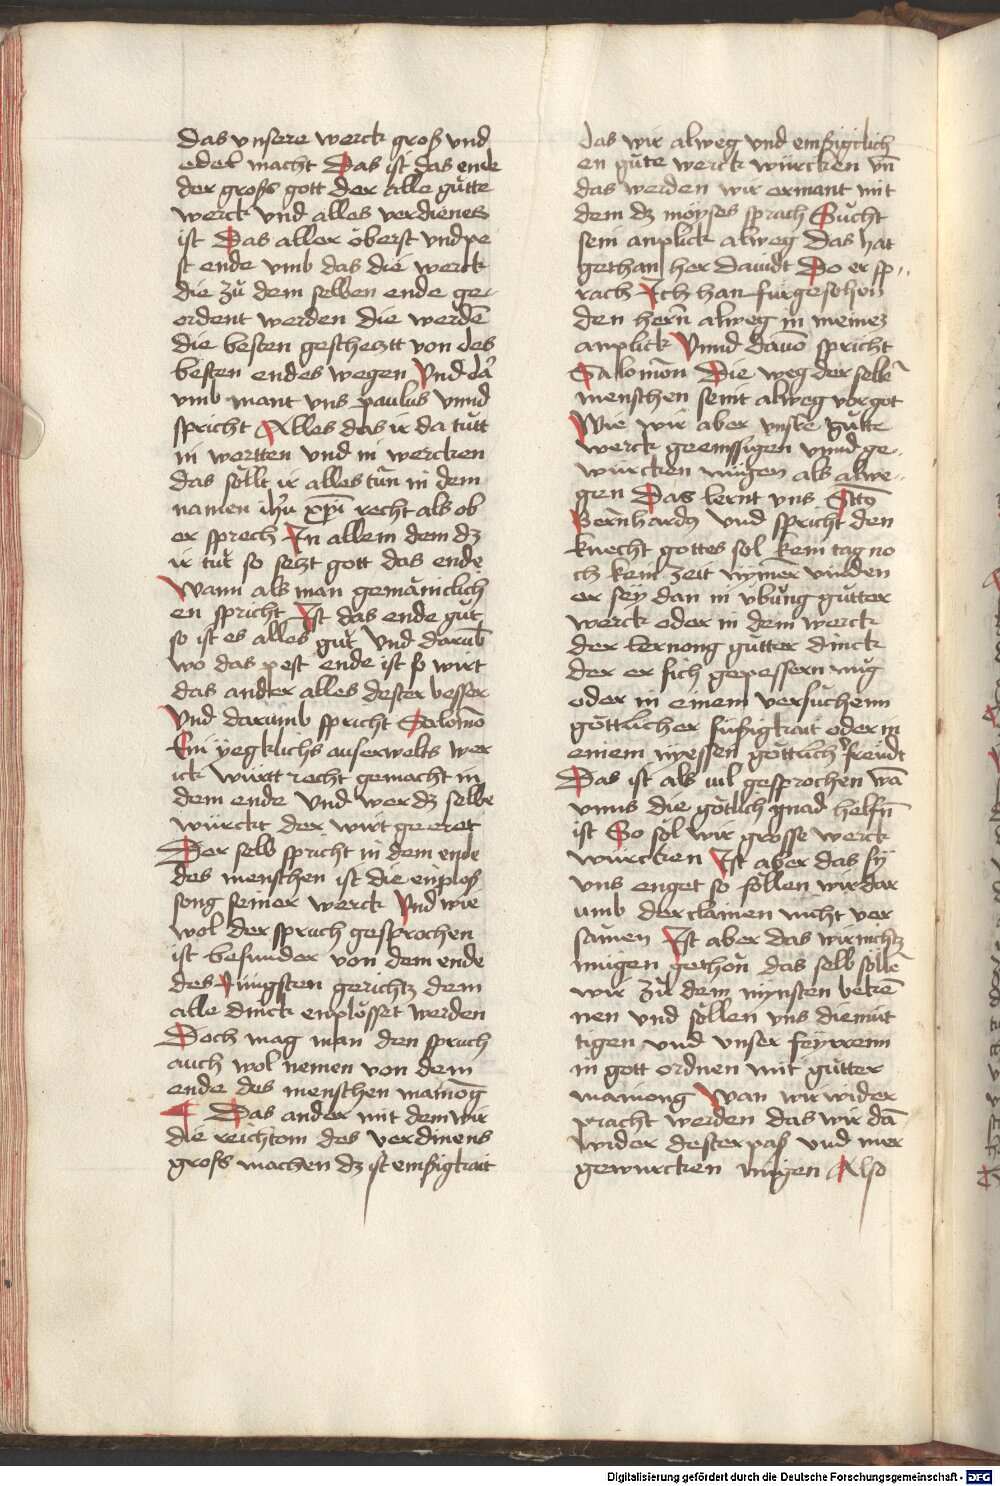 das vnsere werck groß vnd
edel macht Das ist das ende
der groß gott der alle gůtte
werck vnd alles verdienes
ist Das aller öberst vnd pe
st ende vmb das die werck
die zů dem selben ende ge-
ordent werden die werdē
die besten geschetztt von des
besten endes wegen Vnd dar
vmb mant vns paulus vnnd
spricht Alles das ir da tůtt
in wortten vnd in wercken
das söllt ir alles tůn in dem
namen ihū xp̄i recht als ob
er sprech In allem dem dz
ir tůt so setzt gott das ende
Wann als man gemainclich
en spricht Ist das ende gůt
so ist es alles gůt Vnd darūb
wo das pest ende ist so wirt
das ander alles dester besser
Vnd darumb spricht Salomō
Ein yegklichs auserwelts wer
ck wůrtt recht gemacht in
dem ende Vnd wer dz selbe
würckt der wirt geeret
Der selb spricht in dem ende
des menschen ist die enplöß
song seiner werck Vnd wie
wol der spruch gesprochen
ist besunder von dem ende
des Jüngsten gerichtz dem
alle dinck enplösset werden
Doch mag man den spruch
auch wol nemen von dem
ende des menschen mainōg
¶ Das ander mit dem wir
die reichtom des verdinens
groß machen dz ist emßigkait
das wir alweg vnd emßigclich
en gůte werck würcken vn̄
das werden wir ermant mit
dem dz möyses sprach Sůcht
sein anplick alweg Das hat
gethan her dauidt Do er sp-
rach Ich han fürgesehen
den hern alweg in meinez
anplick Vnnd dauō spricht
Salomōn Die weg der selbē
menschen seint alweg vor got
Wie wir aber vnsre gůtte
werck geemssigen vnnd ge-
würcken mügen als alwe-
gen Das lernt vns Stt9
Bernhard9 vnd spricht den
knecht gottes sol kein tag no
ch kein zeit nymēr vinden
er sey dan in vbůng gůtter
werck oder in dem werck
der lernong gůtter dinck
der er sich gepessern mug
oder in einem versůchenn
göttlicher süßigkait oder in
einem nyessen göttlichr freüdt
Das ist als uil gesprochen wā
vnns die götlich gnad helfn̄
ist So söl wir grosse werck
würcken Ist aber das sy
vns enget so söllen wir dar
umb der clainen nicht ver
samen Ist aber das wir nichtz
mügen gethon das selb söllē
wir zů dem mynsten bekē
nen vnd söllen vns diemüt
tigen vnd vnser feyrrenn
in gott ordnen mit gůtter
mainong Wan wir wider
pracht werden das wir dā
wider dester paß vnd mer
gewurcken mügen Also
Digitalisierung gefördert durch die Deutsche Forschungsgemeinschaft - DFG